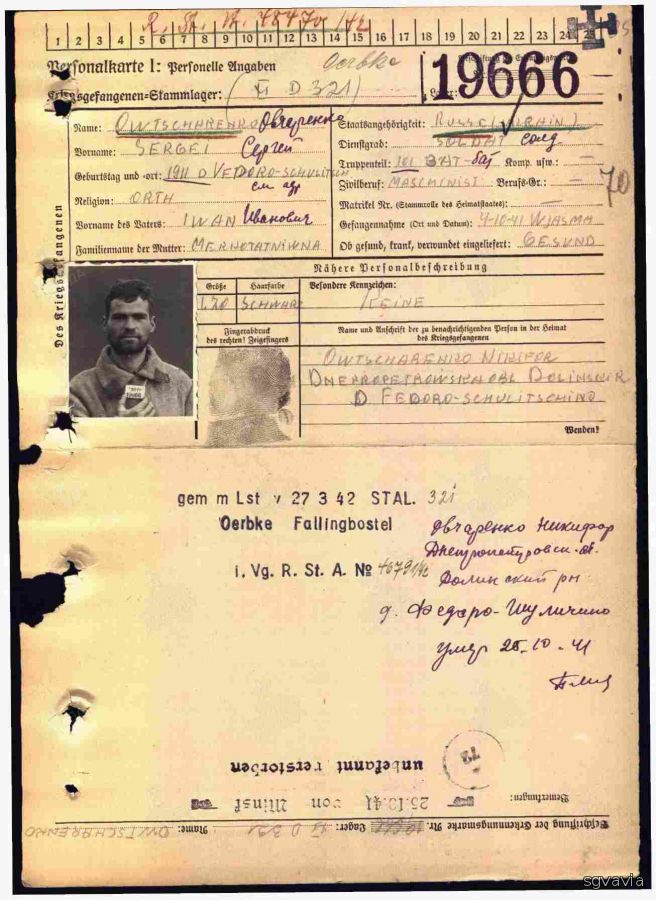 R. St. A. 48470/42
1 2 3 4 5 6 7 8 9 10 11 12 13 14 15 16 17 18 19 20 21 22 23 24 25
Personalkarte I: Personelle Angaben
Oerbke
Kriegsgefangenen=Stammlager: (XI D 321)
19666
Lager:
Des Kriegsgefangenen
Name: OWTSCHARENKO Овчаренко
Vorname: SERGEI Сергей
Geburtstag und -ort: 1911 D VEDORO-SCHULITSCH
см адр
Religion: ORTH
Vorname des Vaters: IWAN Иванович
Familienname der Mutter: MERNOTATNIWNA
Staatsangehörigkeit: RUSSE (UKRAIN)
Dienstgrad: SOLDAT солд
Truppenteil: 101 BAT - бат Komp. usw.: —
Zivilberuf: MASCHINIST Berufs-Gr.: —
70
Matrikel Nr. (Stammrolle des Heimatstaates): —
Gefangennahme (Ort und Datum): 4-10-41 WJASMA
Ob gesund, krank, verwundet eingeliefert: GESUND
Nähere Personalbeschreibung
Größe Haarfarbe Besondere Kennzeichen:
1,70 SCHWARZ KEINE
Fingerabdruck
des rechten! Zeigefingers
Name und Anschrift der zu benachrichtigenden Person in der Heimat
des Kriegsgefangenen
OWTSCHARENKO NIKIFOR
DNEPROPETROWSKA OBL DOLINSKIR
D FEDORO-SCHULITSCHINO
Wenden!
gem m Lst v 27 3 42 STAL. 321
Oerbke Fallingbostel
i. Vg. R. St. A. № 46791/42
Овчаренко Никифор
Днепропетровск. об.
Долинский рн.
д. Федаро-Шуличино
умер 25.10.41
unbekannt verstorben
25.10.41 von Minsk
Bemerkungen:
Beschriftung der Erkennungsmarke Nr. Lager: XI D 321 Name: OWTSCHARENKO
sgvavia